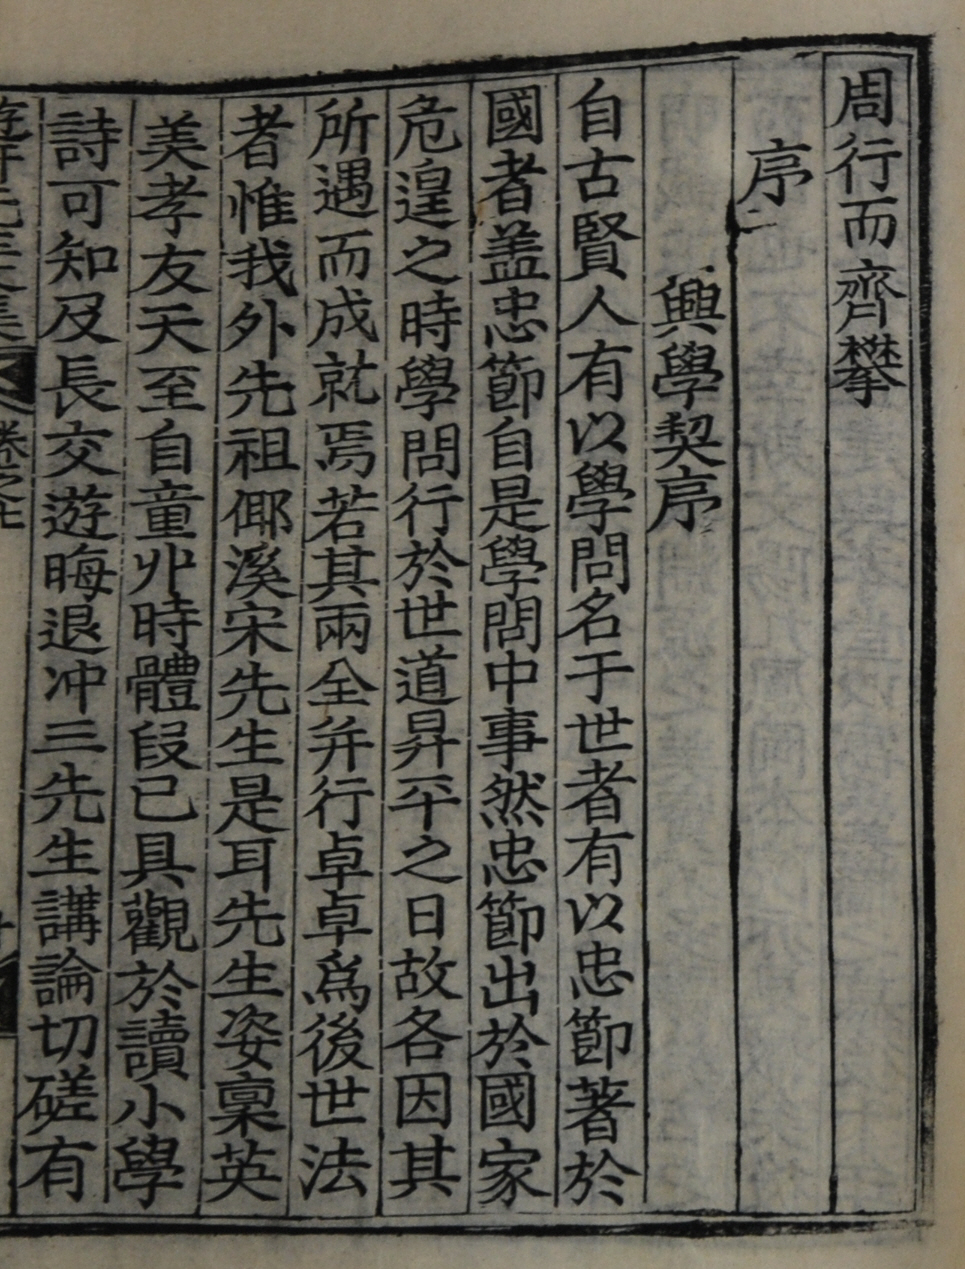 周行而齊攀
序
興學契序
自古賢人有以學問名于世者有以忠節著於
國者盖忠節自是學問中事然忠節出於國家
危遑之時學問行於世道昇平之日故各因其
所遇而成就焉若其兩全幷行卓卓爲後世法
者惟我外先祖倻溪宋先生是耳先生姿稟英
美孝友天至自童丱時體段已具觀於讀小學
詩可知及長交遊晦退冲三先生講論切磋有
卷之七